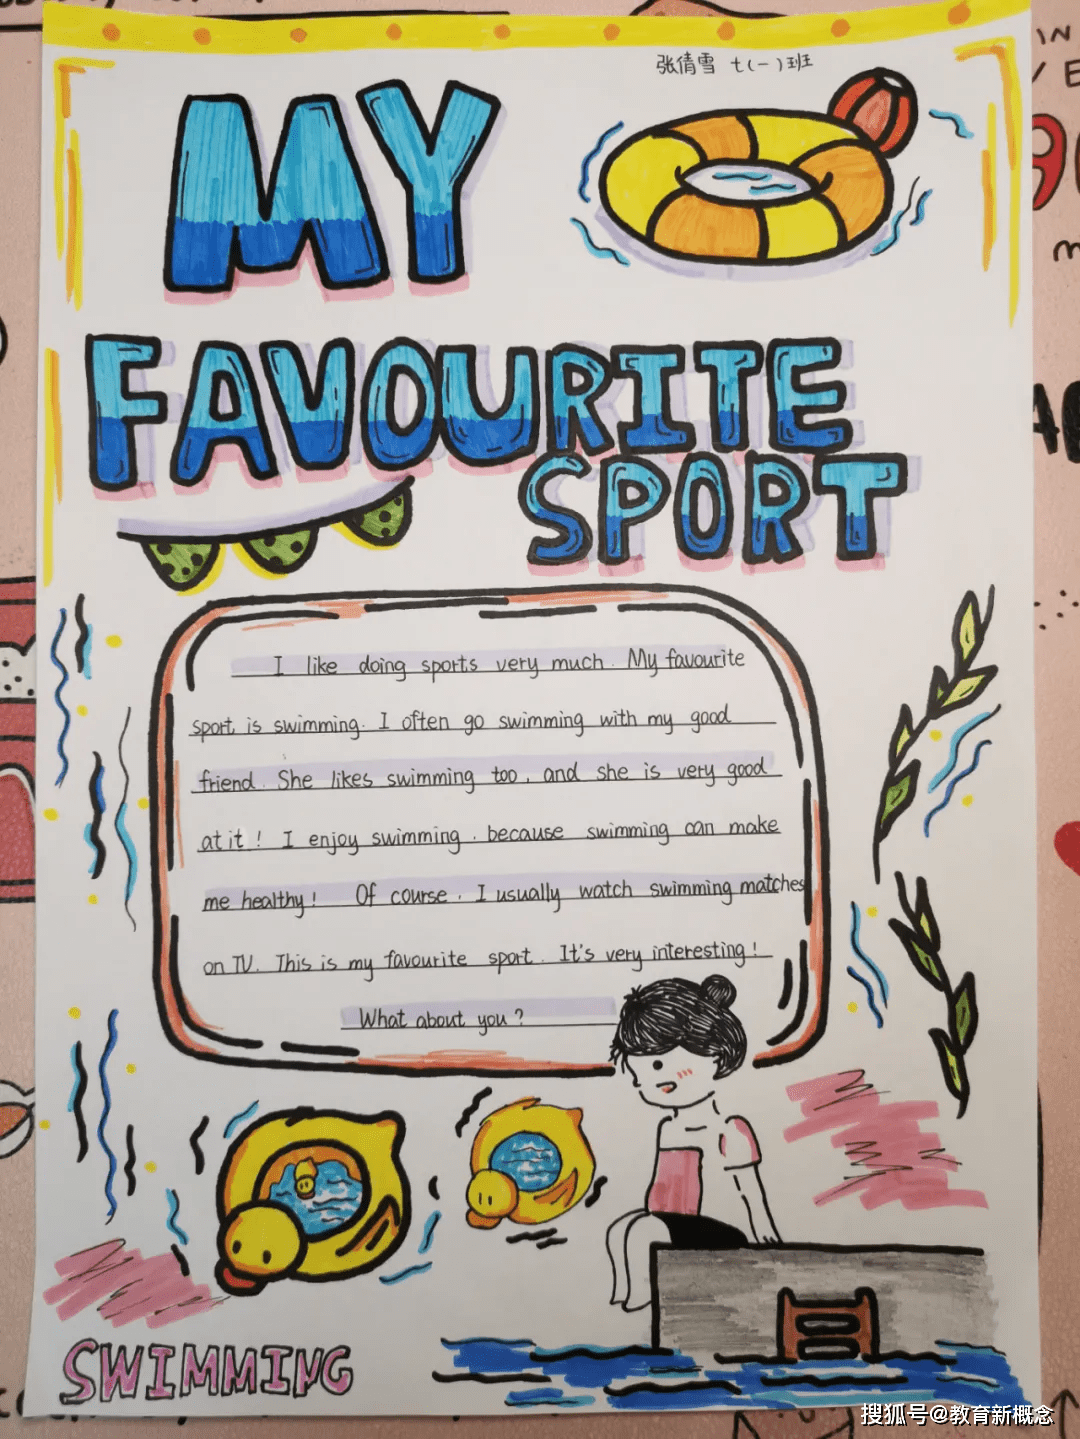 张倩雪 七(一)班
MY
FAVOURITE
SPORT
I like doing sports very much. My favourite
sport is swimming. I often go swimming with my good
friend. She likes swimming too, and she is very good
at it! I enjoy swimming, because swimming can make
me healthy! Of course, I usually watch swimming matches
on TV. This is my favourite sport. It's very interesting!
What about you?
SWIMMING
搜狐号@教育新概念